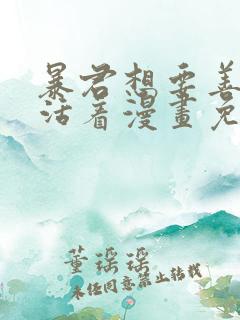 暴君想要善
活看漫畫免
董瑶瑶
未经同意禁止转载